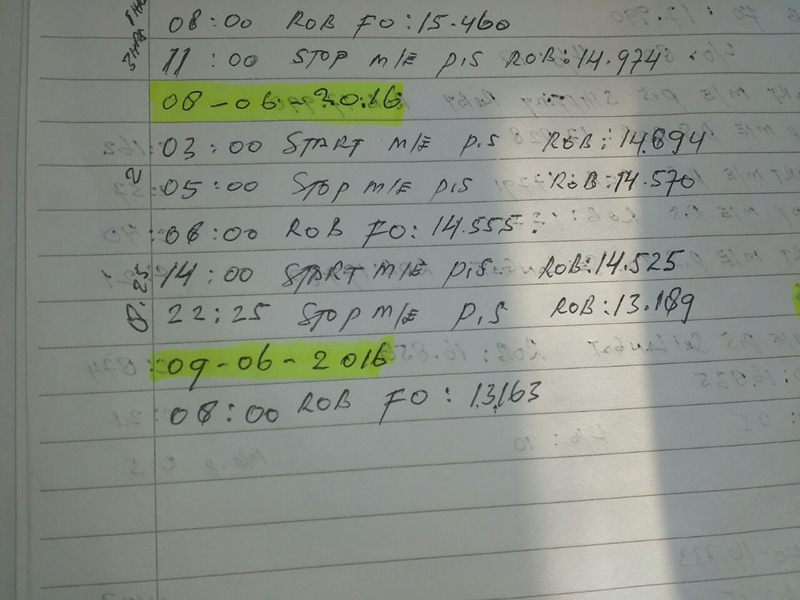 08:00 ROB FO: 15.460
11:00 STOP M/E P.S ROB: 14.974
08-06-2016
03:00 START M/E P.S ROB: 14.894
2
05:00 STOP M/E P.S ROB: 14.570
08:00 ROB FO: 14.555.
14:00 START M/E P.S. ROB: 14.525
8.25
22:25 STOP M/E P.S ROB: 13.189
09-06-2016
08:00 ROB FO: 13.163